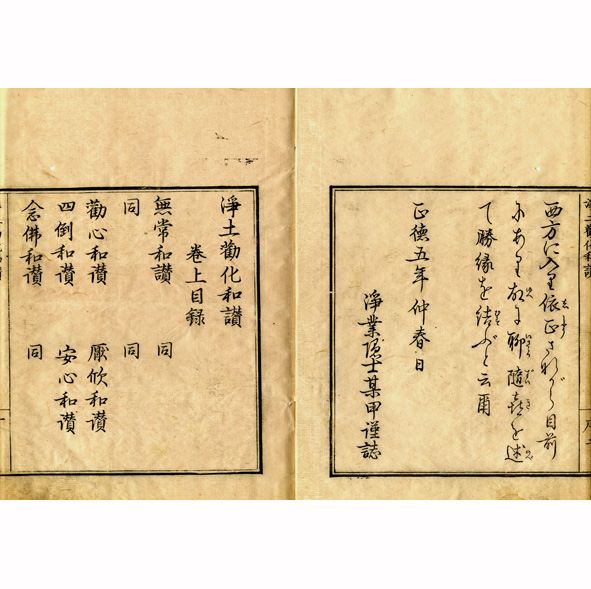 西方に入り依正さながら目前
にあり故に聊隨喜を述
て勝縁を結ぶと云爾
正德五年仲春日
淨業隱士某甲謹誌
淨土勸化和讃
卷上目録
無常和讃 同
同 同
勸心和讃 厭欣和讃
四倒和讃 安心和讃
念佛和讃 同